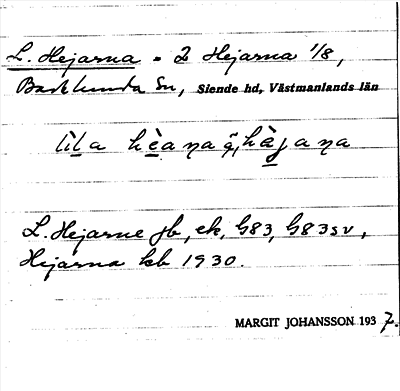 L. Hejarna - 2 Hejarna 1/8,
Barkhunda Sn, Siende hd, Västmanlands län
lìla hèaŋa ä, hàjaŋa
L. Hejarne jb, ek, h83, h83sv,
Hejarna kb 1930.
MARGIT JOHANSSON 1937.